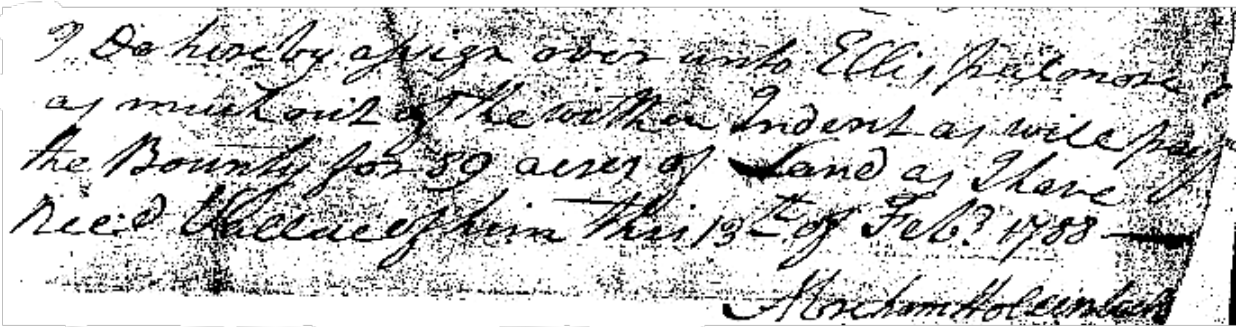 I Do hereby assign over unto Ellis palmore
as much out of the within Indent as will pay
the Bounty for 89 acres of Land as I have
Rec:d Vallue of him this 13th of Feb.y 1788
Abraham Holsenback